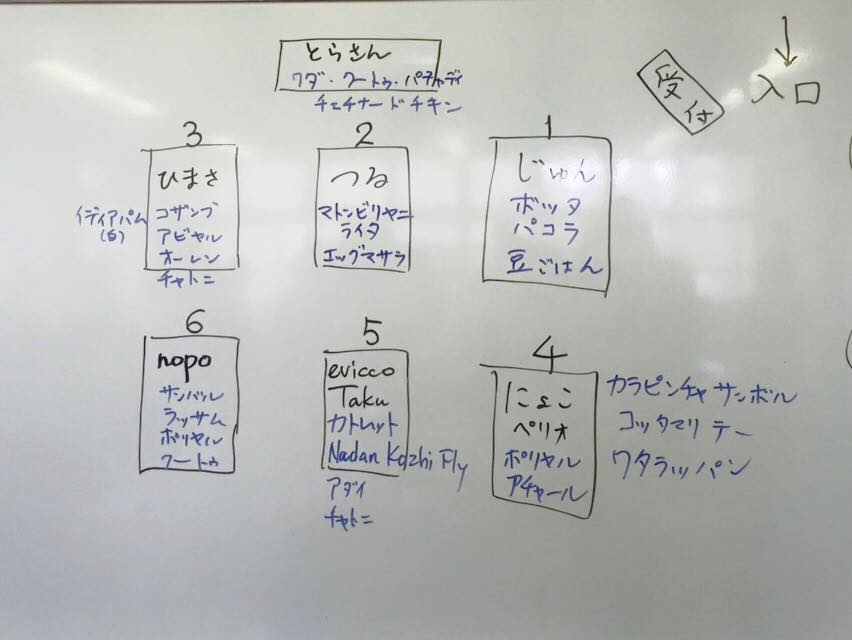 とらさん
ワダ・クートゥ・パチャディ
チェチナードチキン
受付
入口
3
ひまさ
イディアパム
(白)
コザンブ
アビヤル
オーレン
チャトニ
2
つる
マトンビリヤニ
ライタ
エッグマサラ
1
じゅん
ボッタ
パコラ
豆ごはん
6
nopo
サンバル
ラッサム
ポリヤル
クートゥ
5
evicco
Taku
カトレット
Nadan Kozhi Fly
アダイ
チャトニ
4
にょこ
ペリオ
ポリヤル
アチャール
カラピンチャ サンボル
コッタマリ テー
ワタラッパン